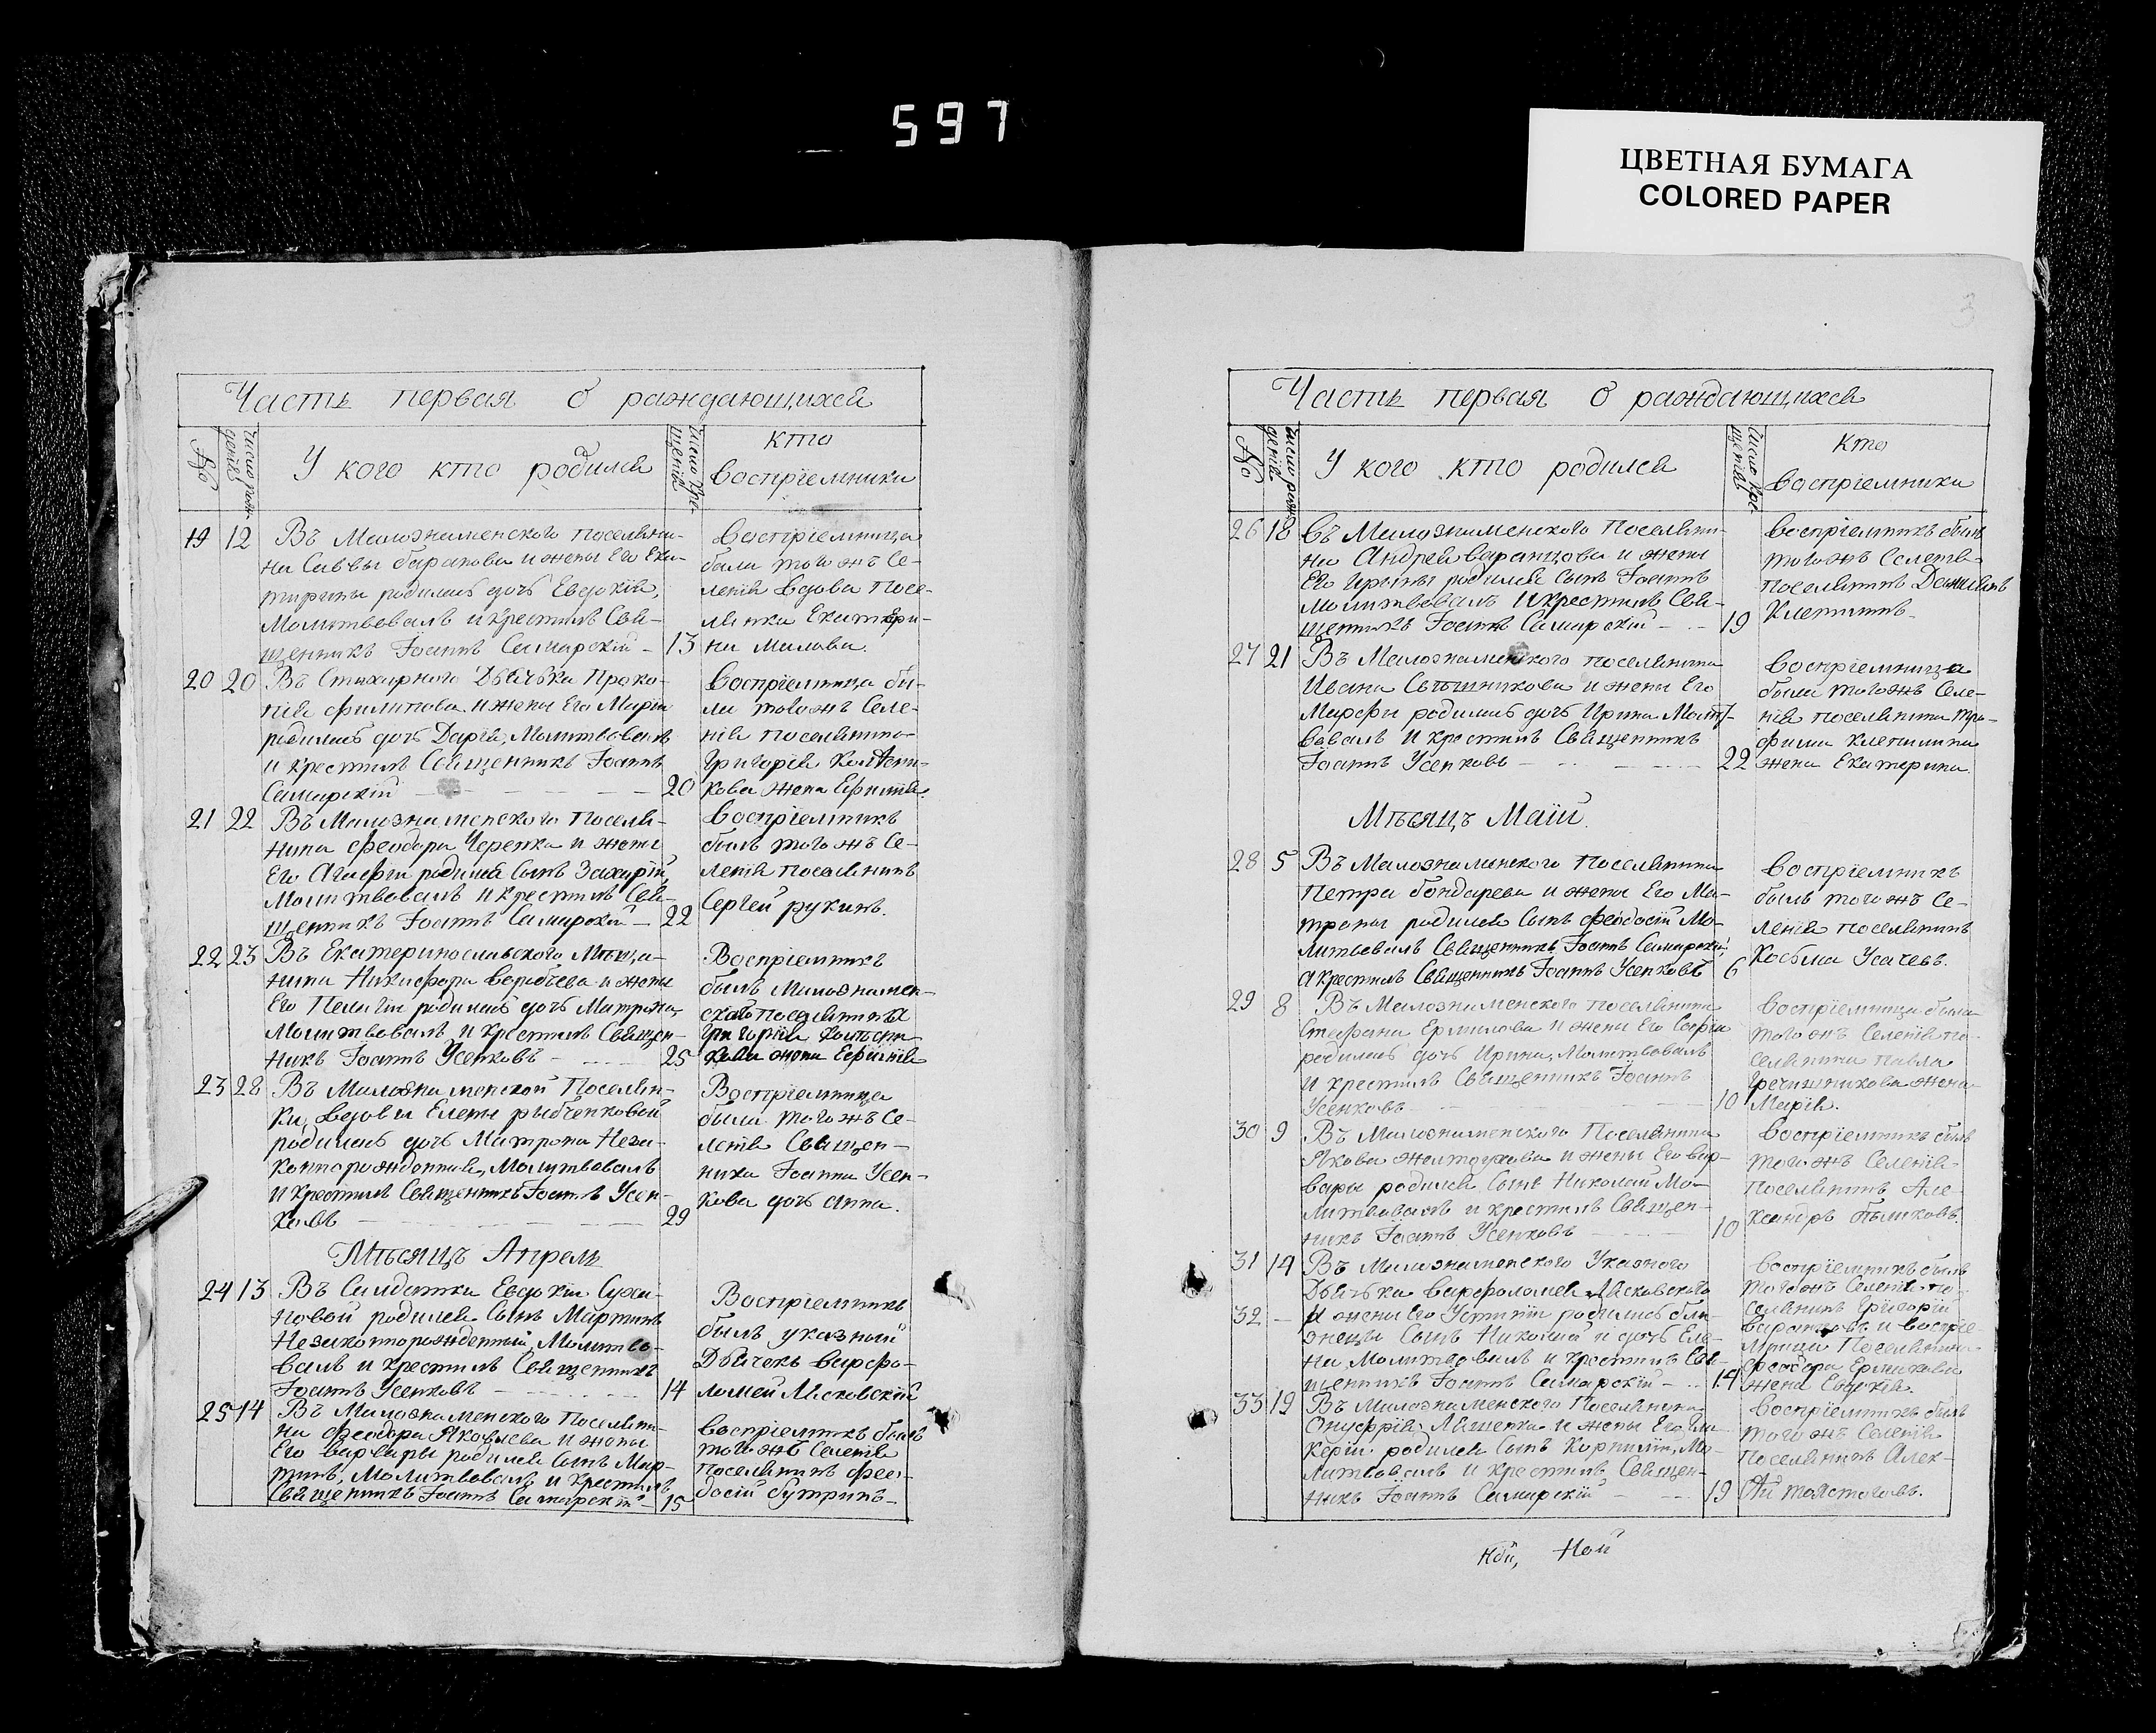 597
ЦВЕТНАЯ БУМАГА
COLORED PAPER
3
Часть первая о раждающихся
№
число рож-
денія
У кого кто родился
число кре-
щенія
кто
воспріемники
19 12 Въ Малознаменского поселяни-
на Саввы баракова и жены Его Ека-
тирины родилась дочь Евдокія,
Молитвовалъ и крестилъ Свя-
щенникъ Іоаннъ Самарскій – 13
воспріемница
была того жъ Се-
ленія вдова посе-
лянка Екатери-
на Малова.
20 20 Въ Стихирного Дьячька Проко-
пія филипова и жены Его Маріи
родилась дочь Дарія, Молитвовалъ
и крестилъ Священникъ Іоаннъ
Самарскій – – – – 20
воспріемница бы-
ла того жъ Селе-
нія поселянина
Григорія
кова жена Ефимія.
21 22 Въ Малознаменского поселя-
нина феодора Черепка и жены
Его Агафіи родился сынъ Захарій,
Молитвовалъ и крестилъ Свя-
щенникъ Іоаннъ Самарскій – 22
воспріемникъ
былъ того жъ Се-
ленія поселянинъ
Сергей рукинъ.
22 23 Въ Екатеринославского Мѣща-
нина Никифора веробьева и жены
Его Пелагіи родилась дочь Матрона,
Молитвовалъ и крестилъ Священ-
никъ Іоаннъ Усенковъ – 25
Воспріемникъ
былъ Малознамен-
ского поселянина
Григорія
кова жена Ефимія
23 28 Въ Малознаменской Поселян-
ки, вдовы Елены рыбченковой
родилась дочь Матрона Неза-
коннорожденная, Молитвовалъ
и крестилъ Священникъ Іоаннъ Усен-
ковъ – – – – 29
Воспріемница
была того жъ Се-
ленія Священ-
ника Іоанна Усен-
кова дочь Анна.
Мѣсяцъ Апрель
24 13 Въ Салдатки Евдокіи Суха-
новой родился Сынъ Мартинъ
Незаконнорожденный, Молитво-
валъ и крестилъ Священникъ
Іоаннъ Усенковъ – – – 14
Воспріемникъ
былъ указный
Дьячекъ варфо-
ломей Лясковскій
25 14 Въ Малознаменского поселяни-
на феодора Яковлева и жены
Его варвары родился сынъ Мар-
тинъ, Молитвовалъ и крестилъ
Священникъ Іоаннъ Самарскій – 15
воспріемникъ былъ
того жъ Селенія
поселянинъ фео-
досій бутринъ –
Часть первая о раждающихся
№
число рож-
денія
У кого кто родился
число кре-
щенія
кто
воспріемники
26 18 Въ Малознаменского Поселяни-
на Андрея варанцова и жены
Его Ирины родился Сынъ Іоаннъ
Молитвовалъ и крестилъ Свя-
щенникъ Іоаннъ Самарскій – – 19
воспріемникъ былъ
того жъ Селенія
поселянинъ Даміянъ
Клепинъ
27 21 Въ Малознаменского поселянина
Ивана Свѣшникова и жены Его
Марфы родилась дочь Ирина Молит-
вовалъ и крестилъ Священникъ
Іоаннъ Усенковъ – – – 22
воспріемница
была того жъ Селе-
нія поселянина тро-
фима клепинина
жена Екатерина.
Мѣсяцъ Маій.
28 5 Въ Малознаменского Поселянина
Петра бондарева и жены Его Ма-
троны родился Сынъ феодосій Мо-
литвовалъ Священникъ Іоаннъ Самарскій,
а крестилъ Священникъ Іоаннъ Усенковъ 6
воспріемникъ
былъ того жъ Се-
ленія поселянинъ
Косьма Усачевъ.
29 8 Въ Малознаменского поселянина
Стефана Ермилова и жены Его Софіи
родилась дочь Ирина, Молитвовалъ
и крестилъ Священникъ Іоаннъ
Усенковъ – – – – 10
воспріемница была
того жъ Селенія по-
селянина павла
Гречишникова жена
Марія.
30 9 Въ Малознаменского Поселянина
Якова желтоухова и жены Его вар-
вары родился Сынъ Николай Мо-
литвовалъ и крестилъ Священ-
никъ Іоаннъ Усенковъ – – 10
воспріемникъ былъ
того жъ Селенія
поселянинъ Але-
ксандръ быликовъ.
31 14 Въ Малознаменского Указного
Дьячька варфоломея Лясковского
32 – и жены Его Устиніи родились бли-
знецы Сынъ Николай и дочь Еле-
на Молитвовалъ и крестилъ Свя-
щенникъ Іоаннъ Самарскій – – 14
воспріемникъ былъ
того жъ Селенія по-
селянинъ Григорій
варанцовъ и воспріе-
мница Поселянина
феодора Ермакова
жена Евдокія.
33 19 Въ Малознаменского Поселянина
Онуфрія Ляшенка и жены Его Гли-
керіи родился Сынъ Корнилій, Мо-
литвовалъ и крестилъ Священ-
никъ Іоаннъ Самарскій – – 19
воспріемникъ былъ
того жъ Селенія
поселянинъ Алек-
ѣй толстоговъ.
Ной